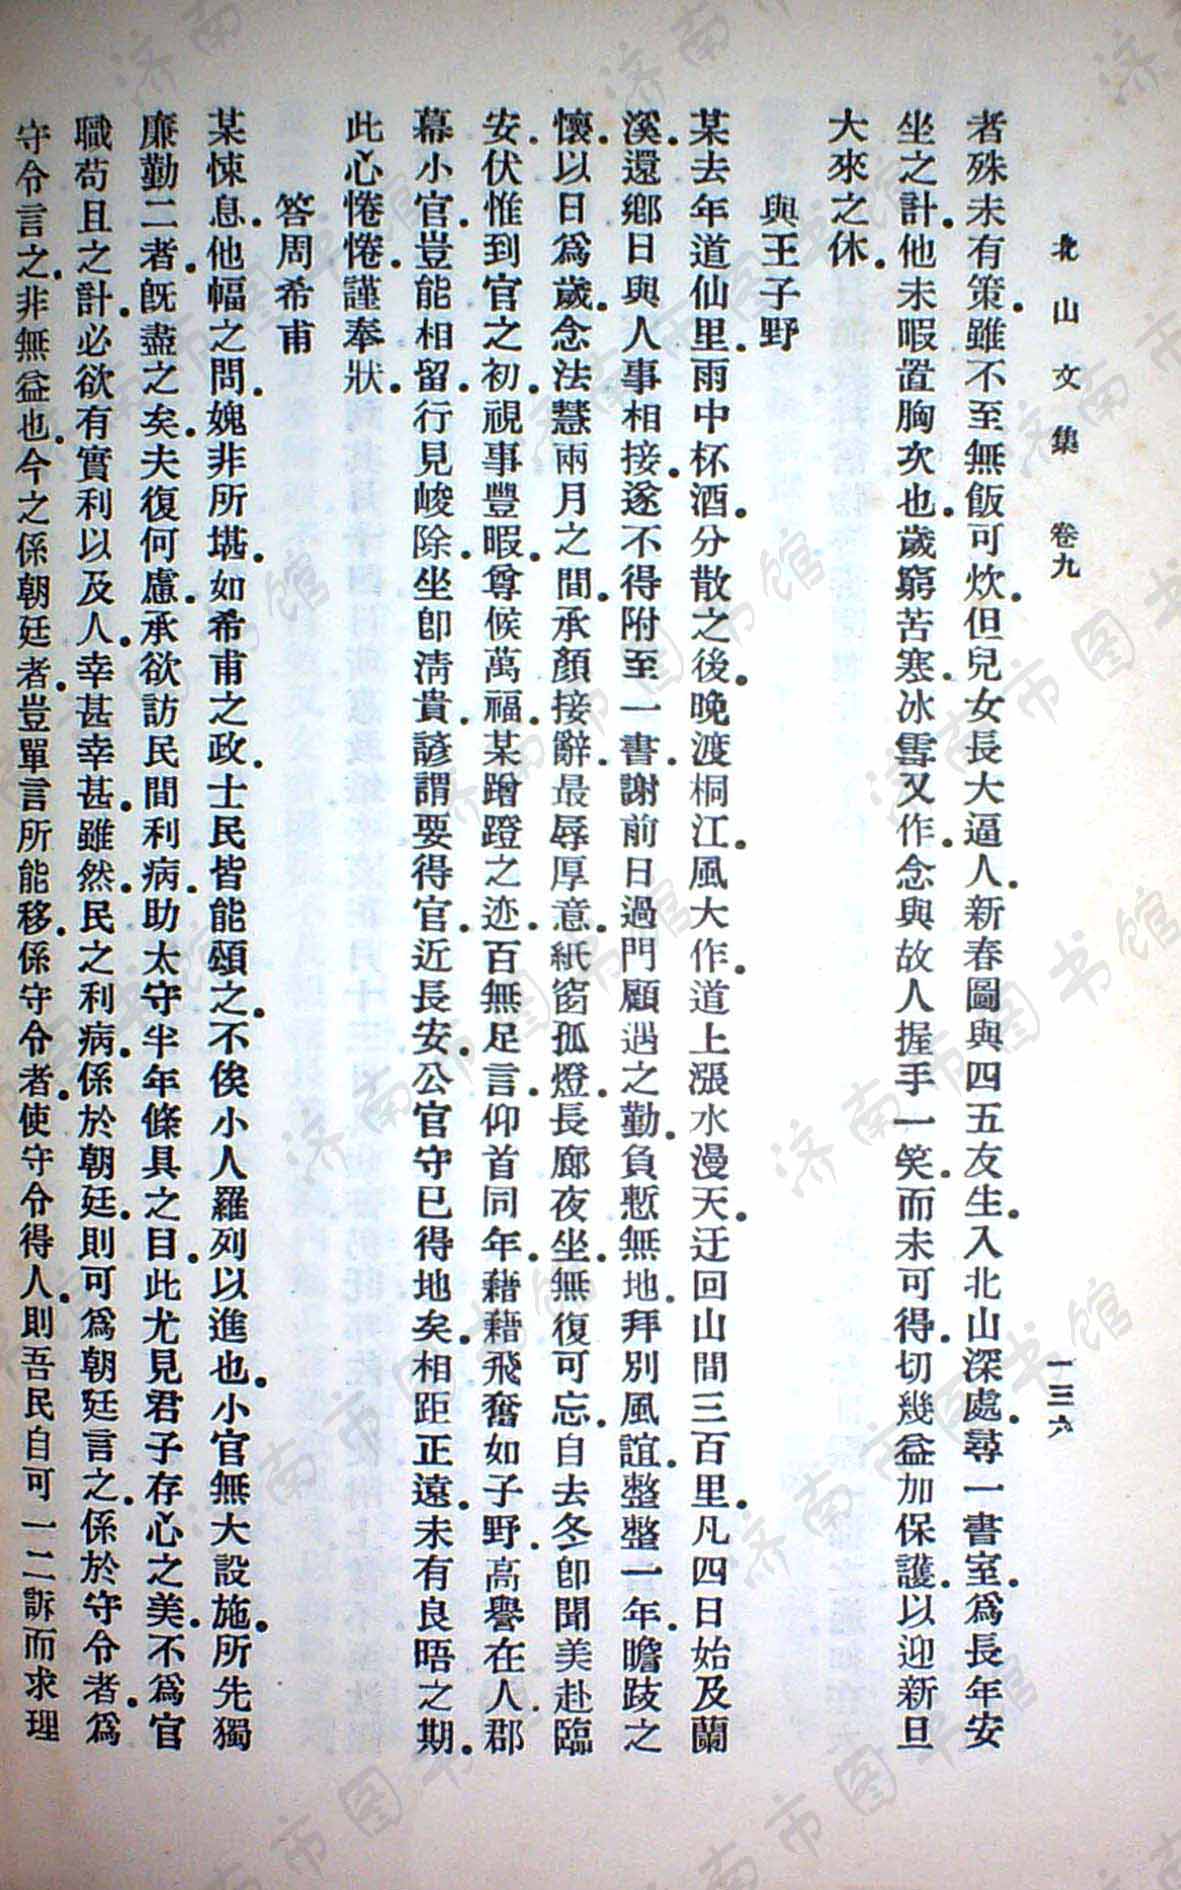 北山文集 卷九 一三六
者殊未有策。雖不至無飯可炊。但兒女長大逼人。新春圖與四五友生。入北山深處。尋一書室。爲長年安
坐之計。他未暇置胸次也。歲窮苦寒。冰雪又作。念與故人握手一笑。而未可得。切幾益加保護。以迎新旦
大來之休。
與王子野
某去年道仙里。雨中杯酒。分散之後。晚渡桐江。風大作。道上漲水漫天。迂回山間三百里。凡四日始及蘭
溪。還鄉日與人事相接。遂不得附至一書。謝前日過門顧遇之勤。負慙無地。拜別風誼。整整一年。瞻跂之
懷。以日爲歲。念法慧兩月之間。承顏接辭。最辱厚意。紙窗孤燈。長廊夜坐。無復可忘。自去冬卽聞美赴臨
安。伏惟到官之初。視事豐暇。尊候萬福。某蹭蹬之迹。百無足言。仰首同年。藉藉飛奮如子野。高譽在人。郡
幕小官。豈能相留。行見峻除。坐卽淸貴。諺謂要得官。近長安。公官守已得地矣。相距正遠。未有良晤之期。
此心惓惓。謹奉狀。
答周希甫
某悚息。他幅之問。媿非所堪。如希甫之政。士民皆能頌之。不俟小人羅列以進也。小官無大設施。所先獨
廉勤二者。旣盡之矣。夫復何慮。承欲訪民間利病。助太守半年條具之目。此尤見君子存心之美。不爲官
職苟且之計。必欲有實利以及人。幸甚幸甚。雖然。民之利病。係於朝廷。則可爲朝廷言之。係於守令者。爲
守令言之。非無益也。今之係朝廷者。豈單言所能移。係守令者。使守令得人。則吾民自可一二訴而求理
济南市图书馆